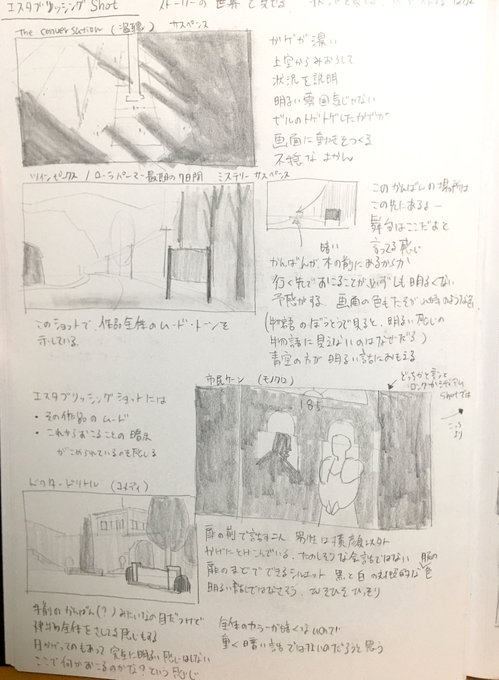 エスタブリッシング Shot ストーリーの世界を見せる
The conversation (盗聴) サスペンス
カゲが濃い
上空からみおろして
状況を説明
明るい雰囲気じゃない
ビルのトゲトゲしたカゲが
画面に動きをつくる
不穏な
ツインピークス / ローラ・パーマー最期の7日間 ミステリー サスペンス
このかんばんの場所は
この先にあるよー
舞台はここだよと
言ってる感じ
暗い
かんばんが、木の前にあるからか
行く先でおこることが必ずしも明るくない
予感がする 画面の色もたそがれ時のような色
(物語のぼうとうで見ると、明るい感じの
物語に見えないのはなぜだろ)
青空の方が明るい話におもえる
このショットで、作品全体のムード・トーンを
示している。
エスタブリッシングショットには
・その作品のムード
・これからおこることの暗示
がこめられているのを感じる
市民ケーン (モノクロ)
どっちかと言うと
ロングかミディアム
Shotでは
こっち
より
185
扉の前で話す二人 男性は横顔
かげにとけこんでいる。たのしそうな会話ではない
扉のまどでできるシルエット 黒と白の対比的な色
明るい話ではなさそう ひそひそ
ドクタードリトル (コメディ)
手前のかんばん(?)みたいなの目だつけど
建物全体をさしてる感じもする
日かげってのもあって完全に明るい感じはしない
ここで何かおこるのかな?という感じ
全体のカラーが暗くないので
重く暗い話ではないのだろうと思う